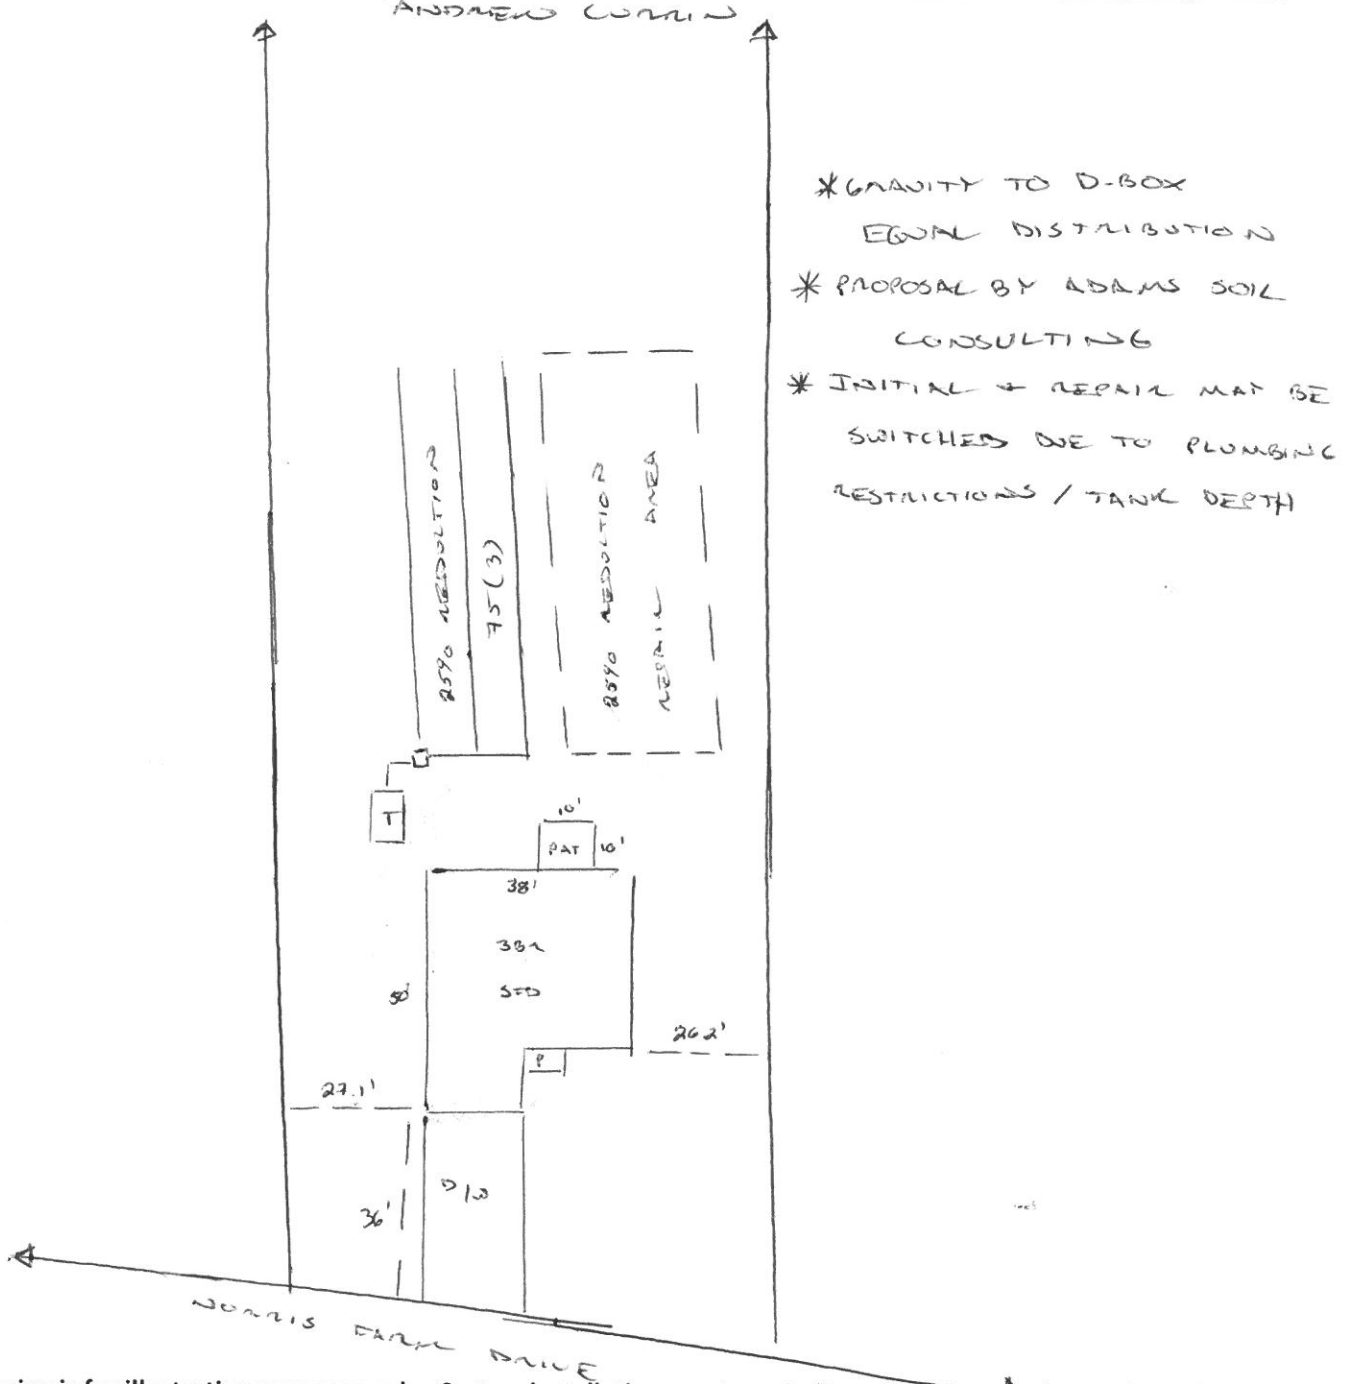 ANDREW CURRIN
* GRAVITY TO D-BOX
EQUAL DISTRIBUTION
* PROPOSAL BY ADAMS SOIL
CONSULTING
* INITIAL + REPAIR MAY BE
SWITCHED DUE TO PLUMBING
RESTRICTIONS / TANK DEPTH
25% REDUCTION
75(3)
25% REDUCTION
REPAIR AREA
T
10'
PAT 10'
38'
3BR
50'
SFD
26.2'
P
27.1'
D/W
36'
NORRIS FARM DRIVE